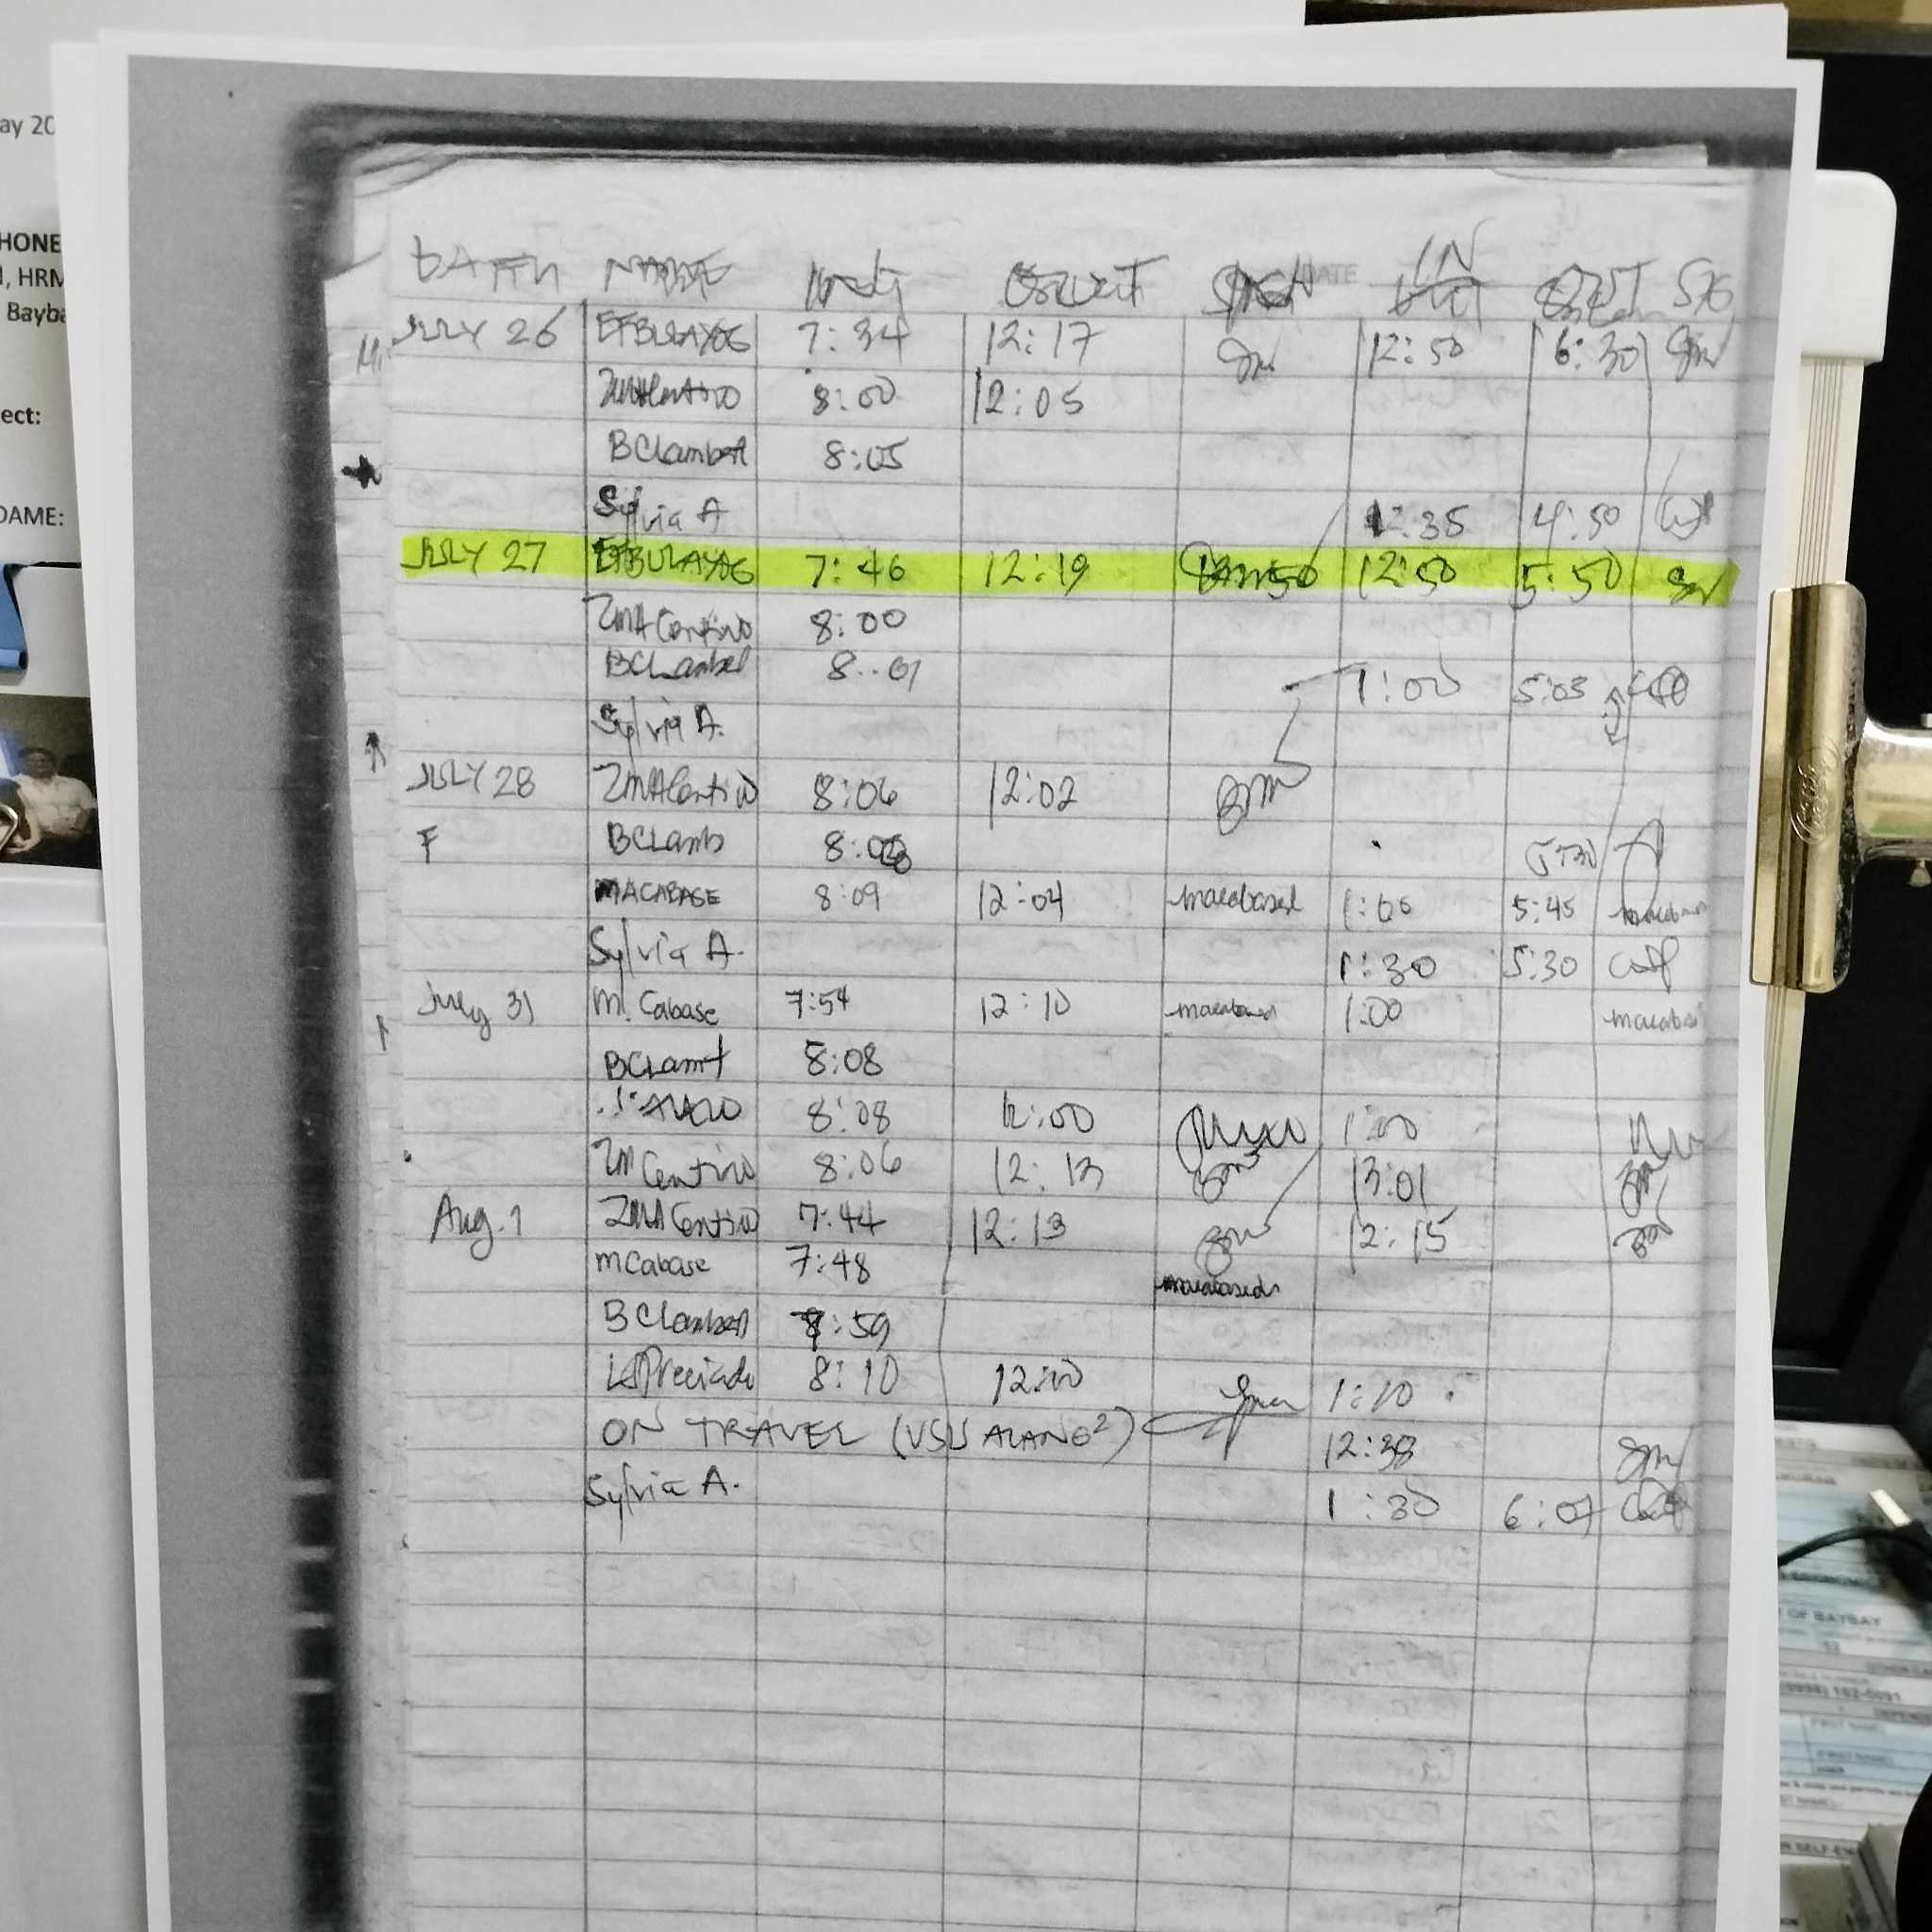 ay 20
HONE
, HRM
Bayba
ect:
DAME:
DATE
NAME IN OUT SIGN IN OUT SIG
JULY 26 EFBULAYOG 7:34 12:17 12:50 6:30
ZMACentino 8:00 12:05
BCLambert 8:05
Sylvia A 12:35 4:50
JULY 27 EFBULAYOG 7:46 12:19 12:50 5:50
ZMACentino 8:00
BCLambel 8:01
1:00 5:03
Sylvia A.
JULY 28 ZMACentino 8:06 12:02
F BCLamb
MACABASE 8:09 12:04 macabased 1:00 5:45
Sylvia A. 1:30 5:30
July 31 M. Cabase 7:54 12:10 1:00
BCLamt 8:08
8:08 12:00 1:00
ZMCentino 8:06 12:13 13:01
Aug. 1 ZMACentino 7:44 12:13 12:15
mCabase 7:48
macabased
BCLambert 7:59
LSPreciado 8:10 12:00 1:10
ON TRAVEL (VSU ALANG²) 12:38
Sylvia A. 1:30 6:07
OF BAYBAY